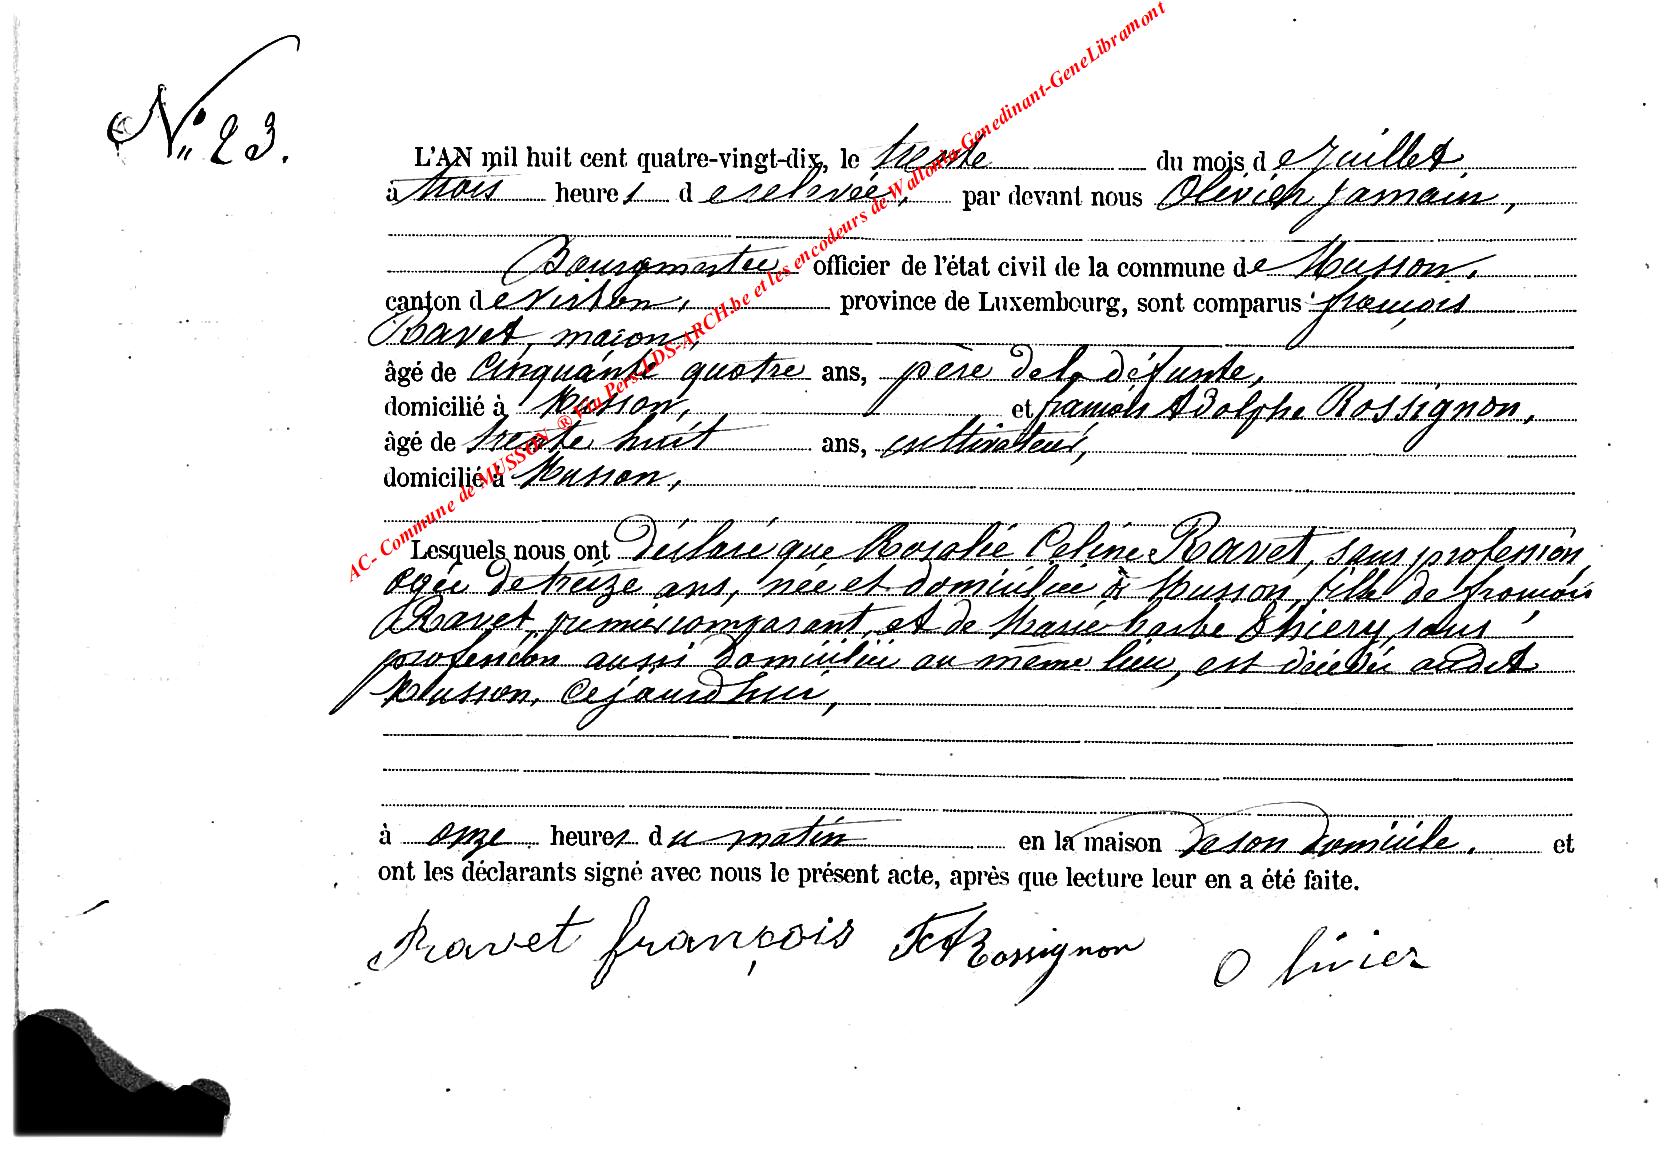 N° 23.
L'AN mil huit cent quatre-vingt-dix, le trente du mois de juillet
à trois heures de relevée, par devant nous Olivier Jamain,
Bourgmestre officier de l'état civil de la commune de Musson,
canton de Virton, province de Luxembourg, sont comparus françois
Ravet, maçon,
âgé de cinquante quatre ans, père de la défunte,
domicilié à Musson, et françois Adolphe Rossignon,
âgé de trente huit ans, cultivateur,
domicilié à Musson,
Lesquels nous ont déclaré que Rosalie Celine Ravet, sans profession,
agée de treize ans, née et domiciliée à Musson, fille de françois
Ravet, premier comparant, et de Marie barbe Thiery, sans
profession aussi domiciliée au même lieu, est décédée audit
Musson, cejourd'hui,
à onze heures du matin en la maison de son domicile. et
ont les déclarants signé avec nous le présent acte, après que lecture leur en a été faite.
Ravet françois Rossignon Olivier
AC- Commune de MUSSON ® Via Pers-LDS-ARCH.be et les encodeurs de Wallonia-Genedinant-GeneLibramont